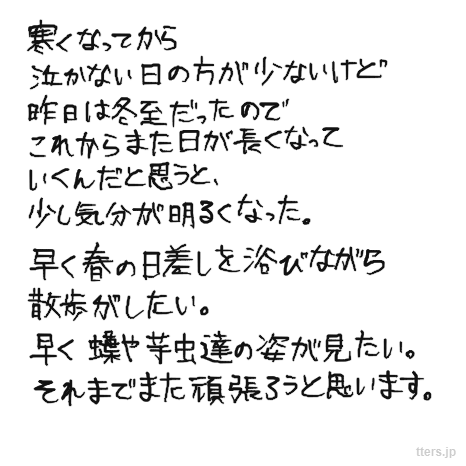 寒くなってから
泣かない日の方が少ないけど
昨日は冬至だったので
これからまた日が長くなって
いくんだと思うと、
少し気分が明るくなった。
早く春の日差しを浴びながら
散歩がしたい。
早く蝶や芋虫達の姿が見たい。
それまでまた頑張ろうと思います。
tters.jp